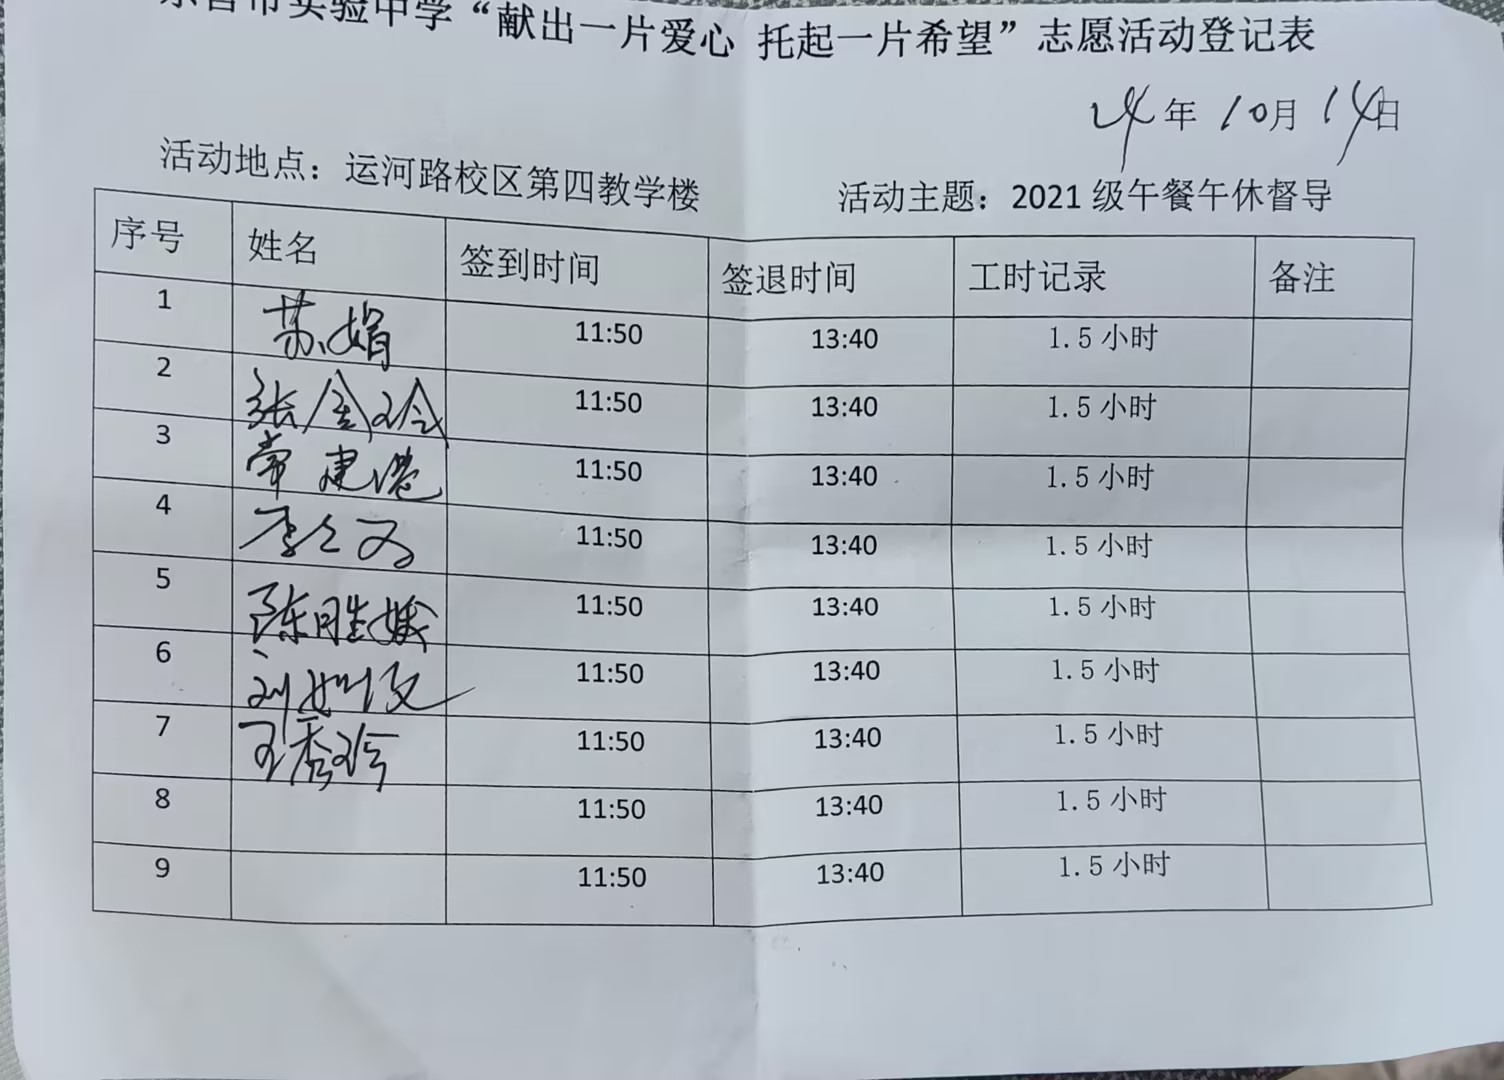 市实验中学“献出一片爱心 托起一片希望”志愿活动登记表
24年 10月 14日
活动地点：运河路校区第四教学楼 活动主题：2021 级午餐午休督导
序号 姓名 签到时间 签退时间 工时记录 备注
1 苏娟 11:50 13:40 1.5 小时
2 张金玲 11:50 13:40 1.5 小时
3 常建港 11:50 13:40 1.5 小时
4 李 11:50 13:40 1.5 小时
5 陈胜娥 11:50 13:40 1.5 小时
6 刘 11:50 13:40 1.5 小时
7 王秀玲 11:50 13:40 1.5 小时
8 11:50 13:40 1.5 小时
9 11:50 13:40 1.5 小时